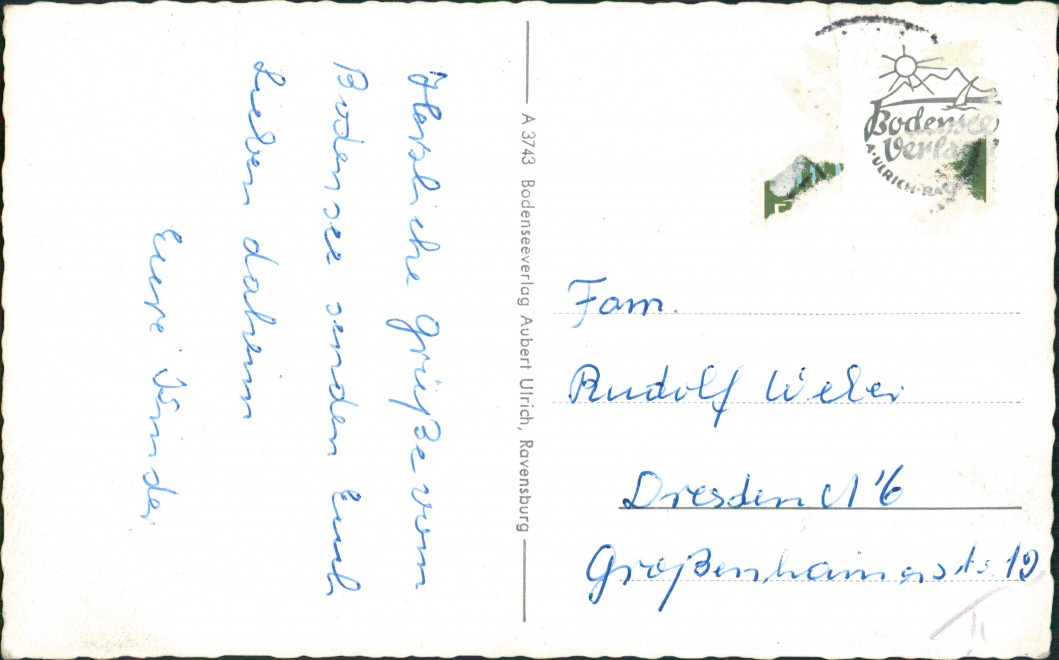 Herzliche Grüße vom
Bodensee senden Euch
Lieben daheim
Eure
A 3743 Bodenseeverlag Aubert Ulrich, Ravensburg
Bodensee
Verlag
A·ULRICH·RAV
Fam.
Rudolf Weber
Dresden N 6
Großenhainerstr. 19
II